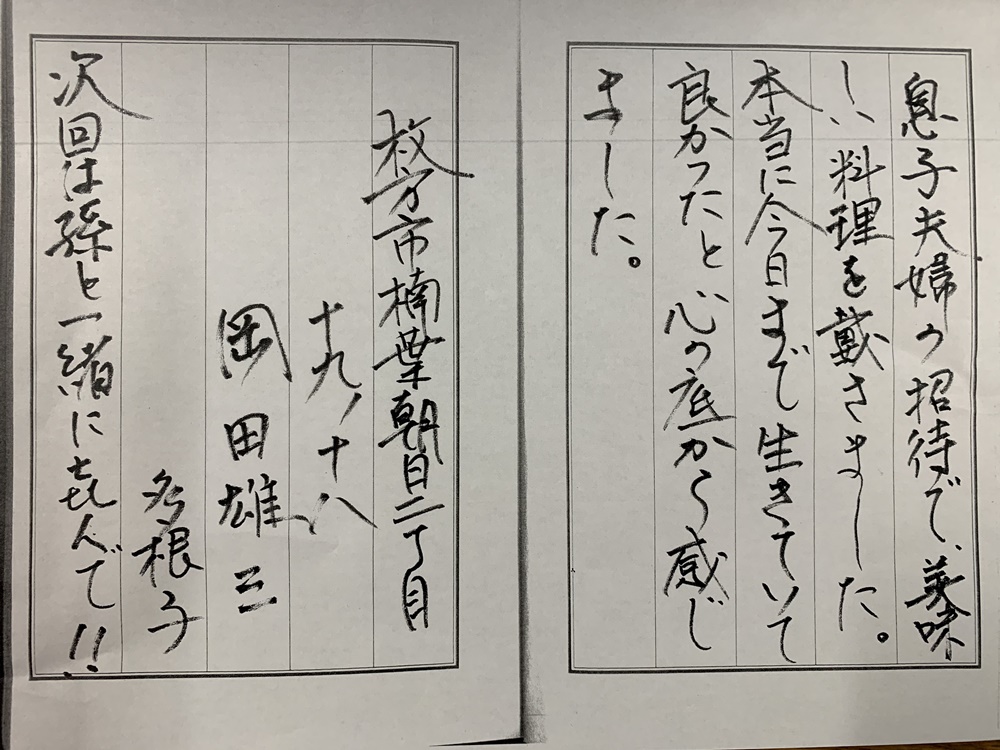 息子夫婦の招待で、美味
しい料理を戴きました。
本当に今日まで生きていて
良かったと心の底から感じ
ました。
枚方市楠葉朝日二丁目
十九ノ十八
岡田雄三
多根子
次回は孫と一緒に㐂んで!!